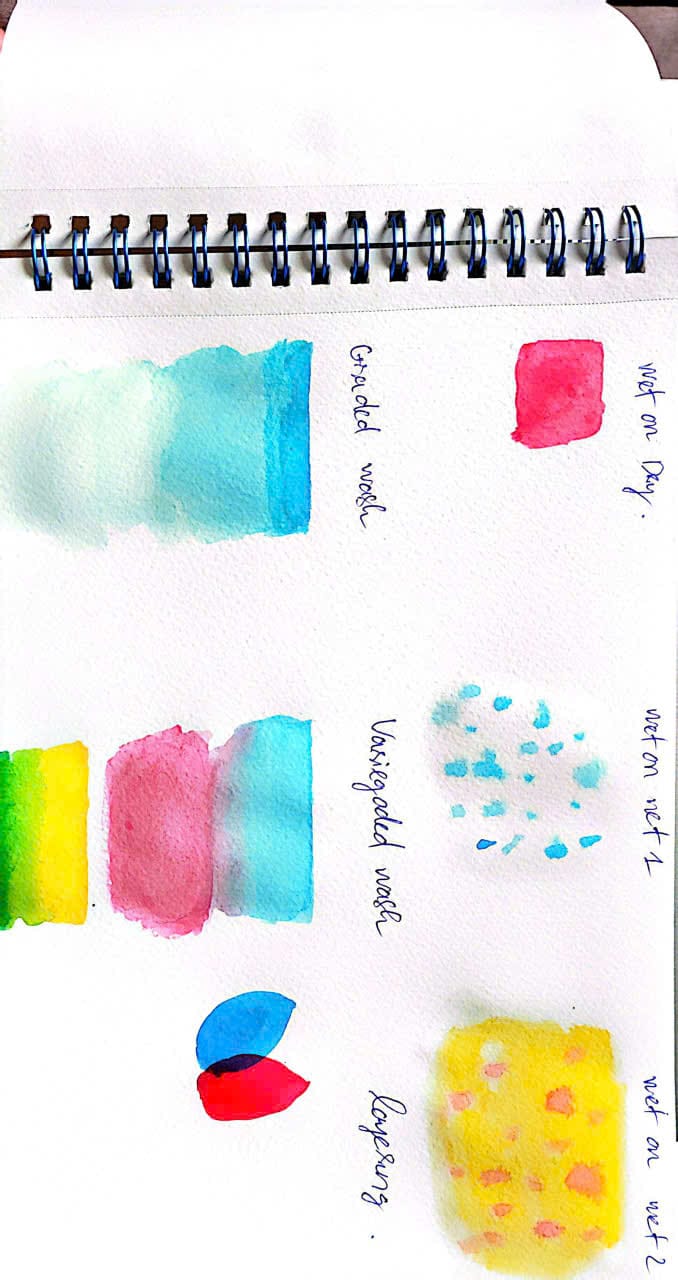 wet on Day.
wet on wet 1
wet on wet 2
Graded wash
Variegaded wash
layering.